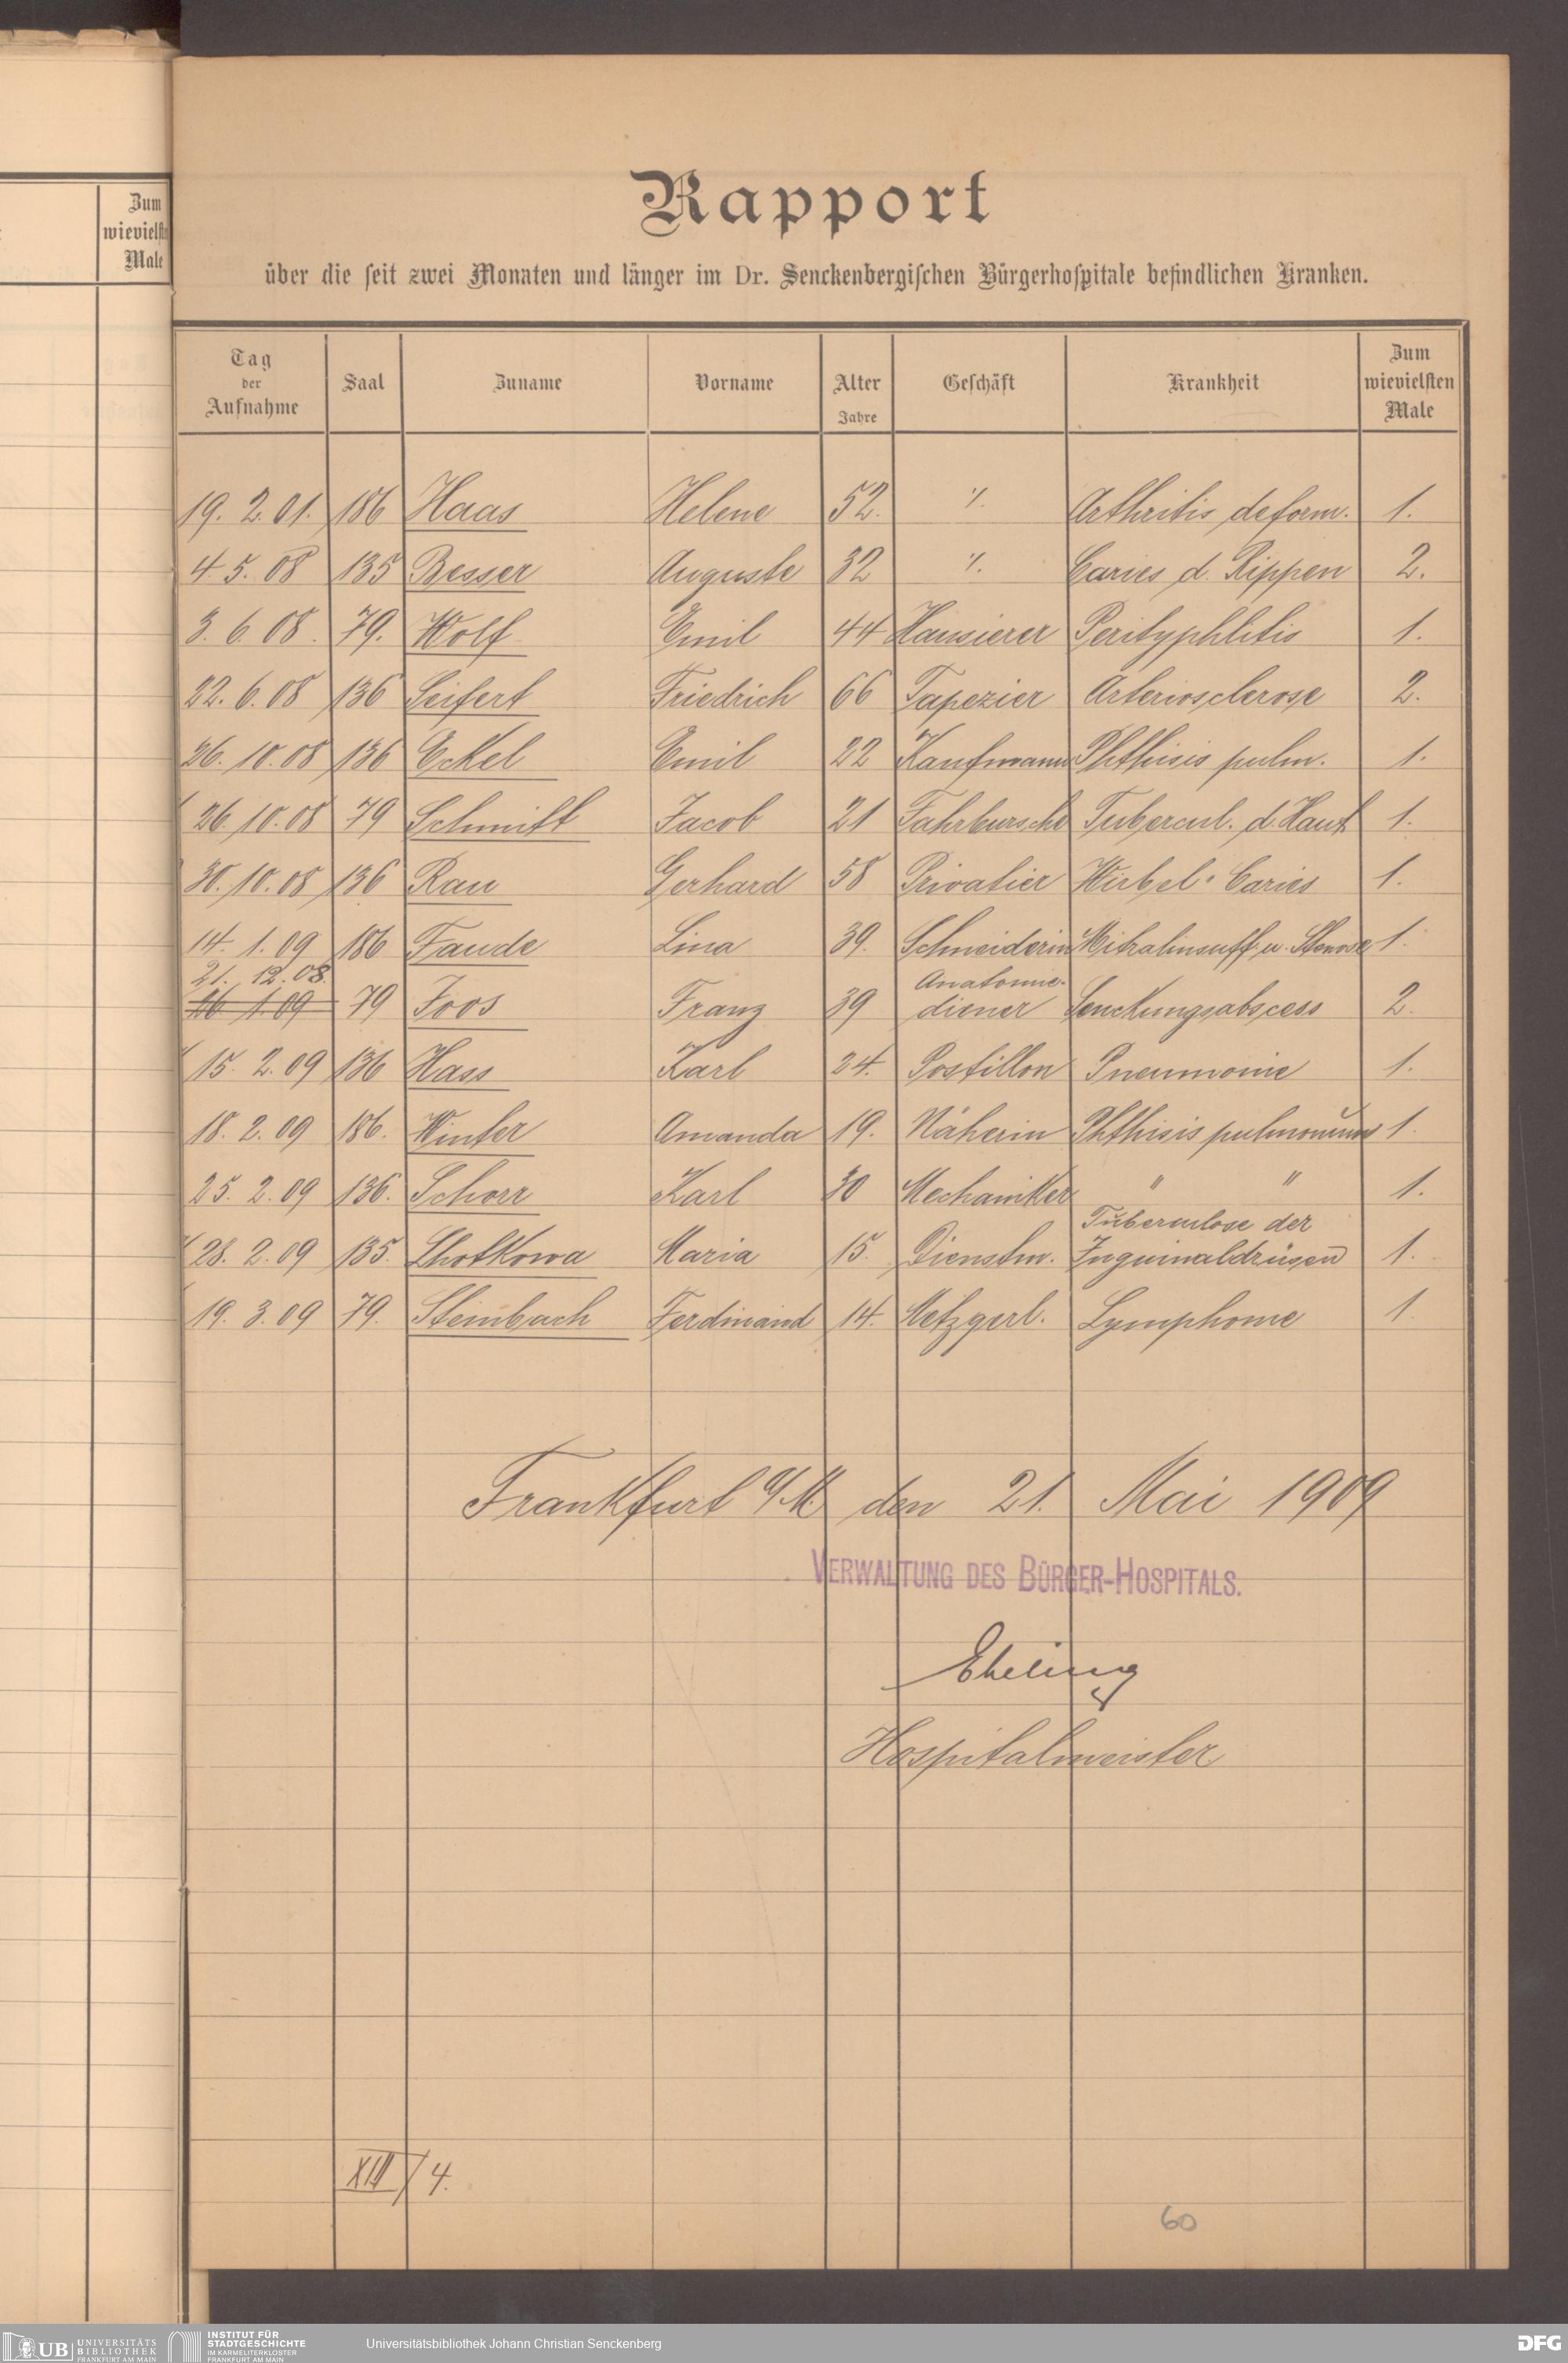 Zum
wievielsten
Male
Rapport
über die seit zwei Monaten und länger im Dr. Senckenbergischen Bürgerhospitale befindlichen Kranken.
Tag der Aufnahme | Saal | Zuname | Vorname | Alter Jahre | Geschäft | Krankheit | Zum wievielsten Male
19. 2. 01. | 186 | Haas | Helene | 52. | ·/. | Arthritis deform. | 1.
4. 5. 08 | 135 | Besser | Auguste | 32 | ·/. | Caries d. Rippen | 2.
3. 6. 08. | 79. | Wolf | Emil | 44 | Hausierer | Perityphlitis | 1.
22. 6. 08 | 136 | Seifert | Friedrich | 66 | Tapezier | Arteriosclerose | 2.
26. 10. 08 | 136 | Eckel | Emil | 22 | Kaufmann | Phthisis pulm. | 1.
26. 10. 08 | 79 | Schmitt | Jacob | 21 | Fahrbursche | Tubercul. d. Haut | 1.
30. 10. 08 | 136 | Rau | Gerhard | 58 | Privatier | Wirbel-Caries | 1.
14. 1. 09 | 186 | Faude | Lina | 39. | Schneiderin | Mitralinsuff. u. Stenose | 1.
21. 12. 08. | Anatomie-
26 1. 09 | 79 | Joos | Franz | 39 | diener | Senckungsabscess | 2.
15. 2. 09 | 136 | Hass | Karl | 24. | Postillon | Pneumonie | 1.
18. 2. 09 | 186. | Winter | Amanda | 19. | Näherin | Phthisis pulmonum | 1.
25. 2. 09 | 136. | Schorr | Karl | 30 | Mechaniker | " " | 1.
Tuberculose der
28. 2. 09 | 135. | Lhotkowa | Maria | 15. | Dienstm. | Inguinaldrüsen | 1.
19. 3. 09 | 79. | Steinbach | Ferdinand | 14. | Metzgerl. | Lymphome | 1.
Frankfurt a/M den 21. Mai 1909
VERWALTUNG DES BÜRGER-HOSPITALS.
Ebeling
Hospitalmeister
XIII/4.
60
UB UNIVERSITÄTS
BIBLIOTHEK
FRANKFURT AM MAIN
INSTITUT FÜR
STADTGESCHICHTE
IM KARMELITERKLOSTER
FRANKFURT AM MAIN
Universitätsbibliothek Johann Christian Senckenberg
DFG